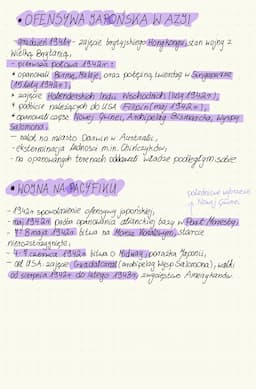 • OFENSYWA JAPOŃSKA W AZJI
- grudzień 1941r - zajęcie brytyjskiego Hongkongu, stan wojny z
Wielką Brytanią,
- pierwsza połowa 1942r:
• opanowali Birmę, Malaje, oraz potężną twierdzę w Singapurze
(15 luty 1942r),
• zajęcie Holenderskich Indii Wschodnich (luty 1942r),
• podbicie należących do USA Filipin (maj 1942r),
• opanowali część Nowej Gwinei, Archipelag Bismarcka, Wyspy
Salomona,
- nalot na miasto Darwin w Australii,
- eksterminacja ludności m.in. Chińczyków,
- na opanowanych terenach osadzali władze podległym sobie
• WOJNA NA PACYFIKU
południowe wybrzeże
Nowej Gwinei
- 1942r spowolnienie ofensywy japońskiej,
- maj 1942r próba opanowania alianckiej bazy w Port Moresby,
- 7-8 maja 1942r bitwa na Morzu Koralowym, starcie
nierozstrzygnięte,
- 4-7 czerwca 1942r bitwa o Midway, porażka Japonii,
- USA zajęcie Guadalcanal (archipelag Wysp Salomona), walki
od sierpnia 1942r do lutego 1943r, zwycięstwo Amerykanów.